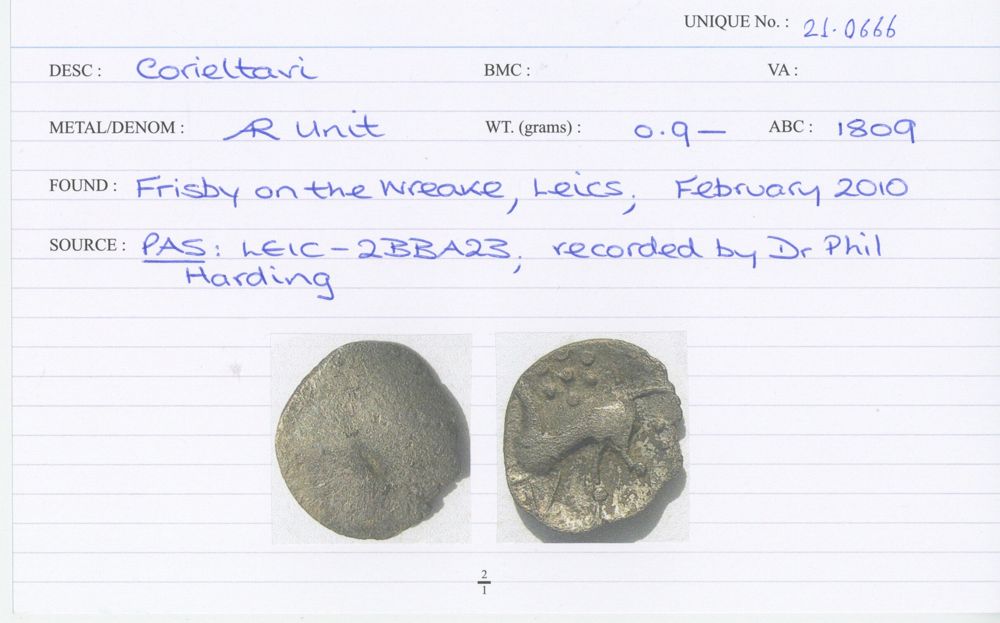 UNIQUE No. : 21.0666
DESC : Corieltavi BMC : VA :
METAL/DENOM : AR Unit WT. (grams) : 0.9— ABC : 1809
FOUND : Frisby on the Wreake, Leics; February 2010
SOURCE : PAS: LEIC-2BBA23; recorded by Dr Phil
Harding
2
1